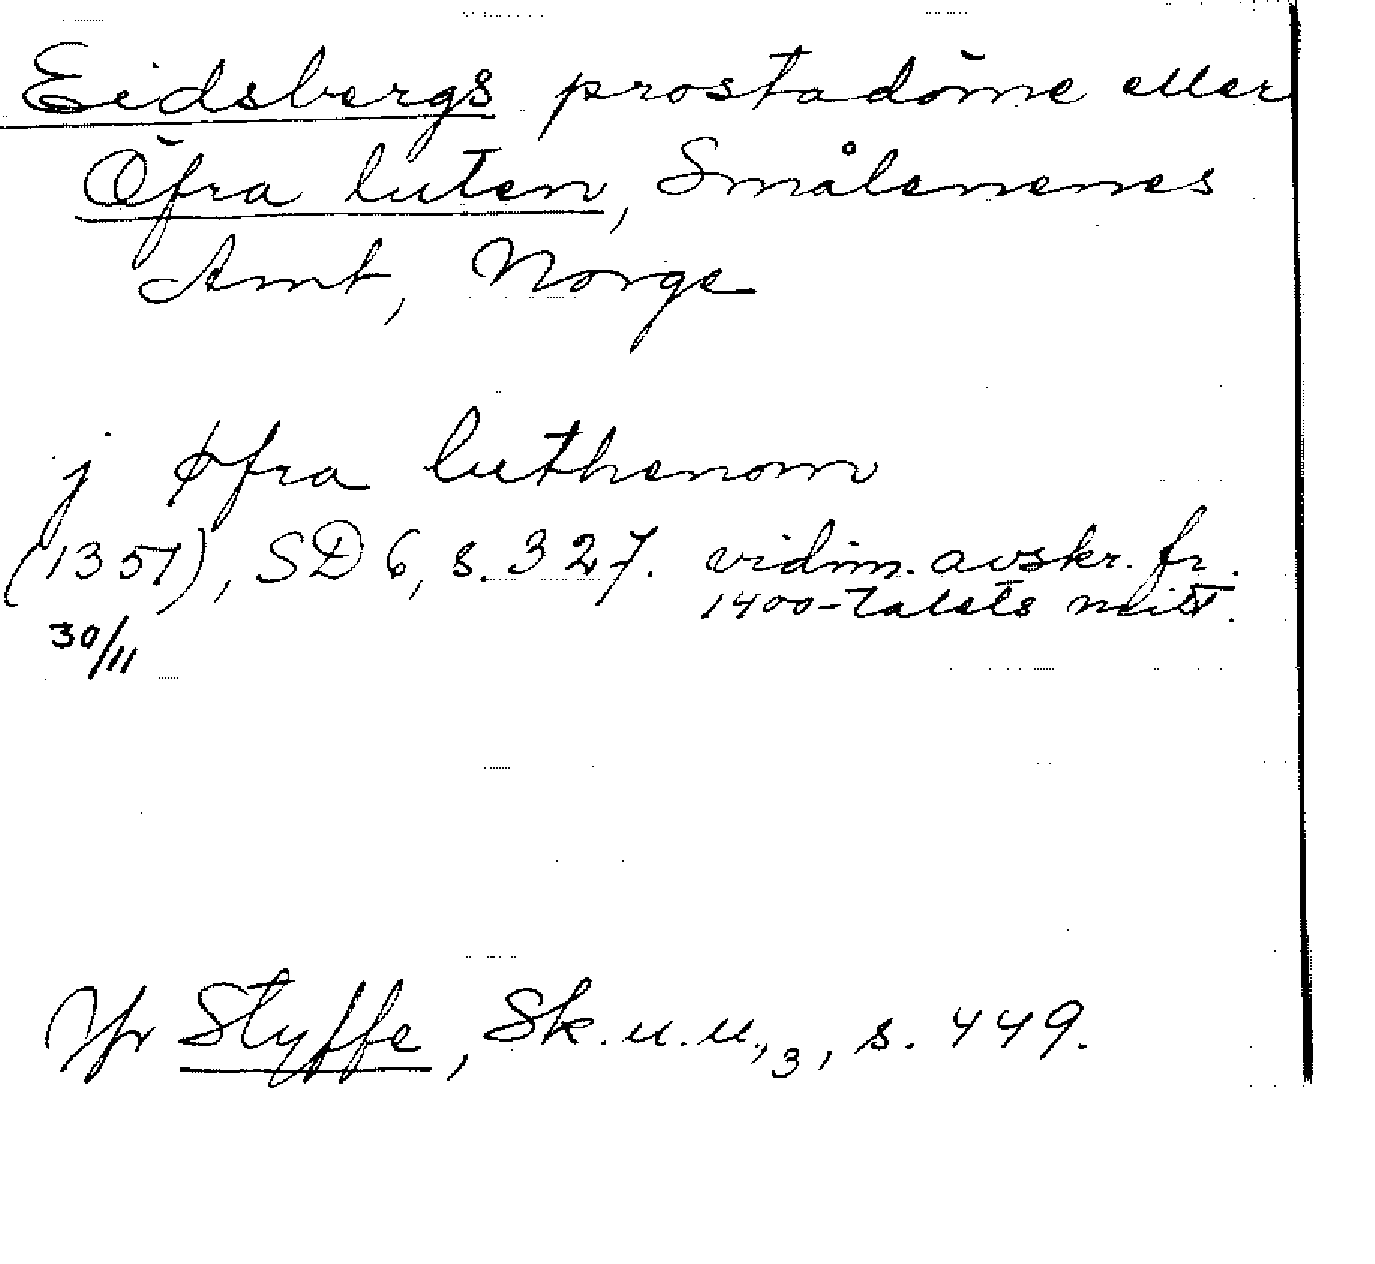 Eidsbergs prostadöme eller
Öfra luten, Smålenenes
Amt, Norge
j øfra luthenom
(1351), SD 6, s. 327. vidim. avskr. fr.
1400-talets mitt.
30/11
Jfr Styffe, Sk.u.u.,3, s. 449.